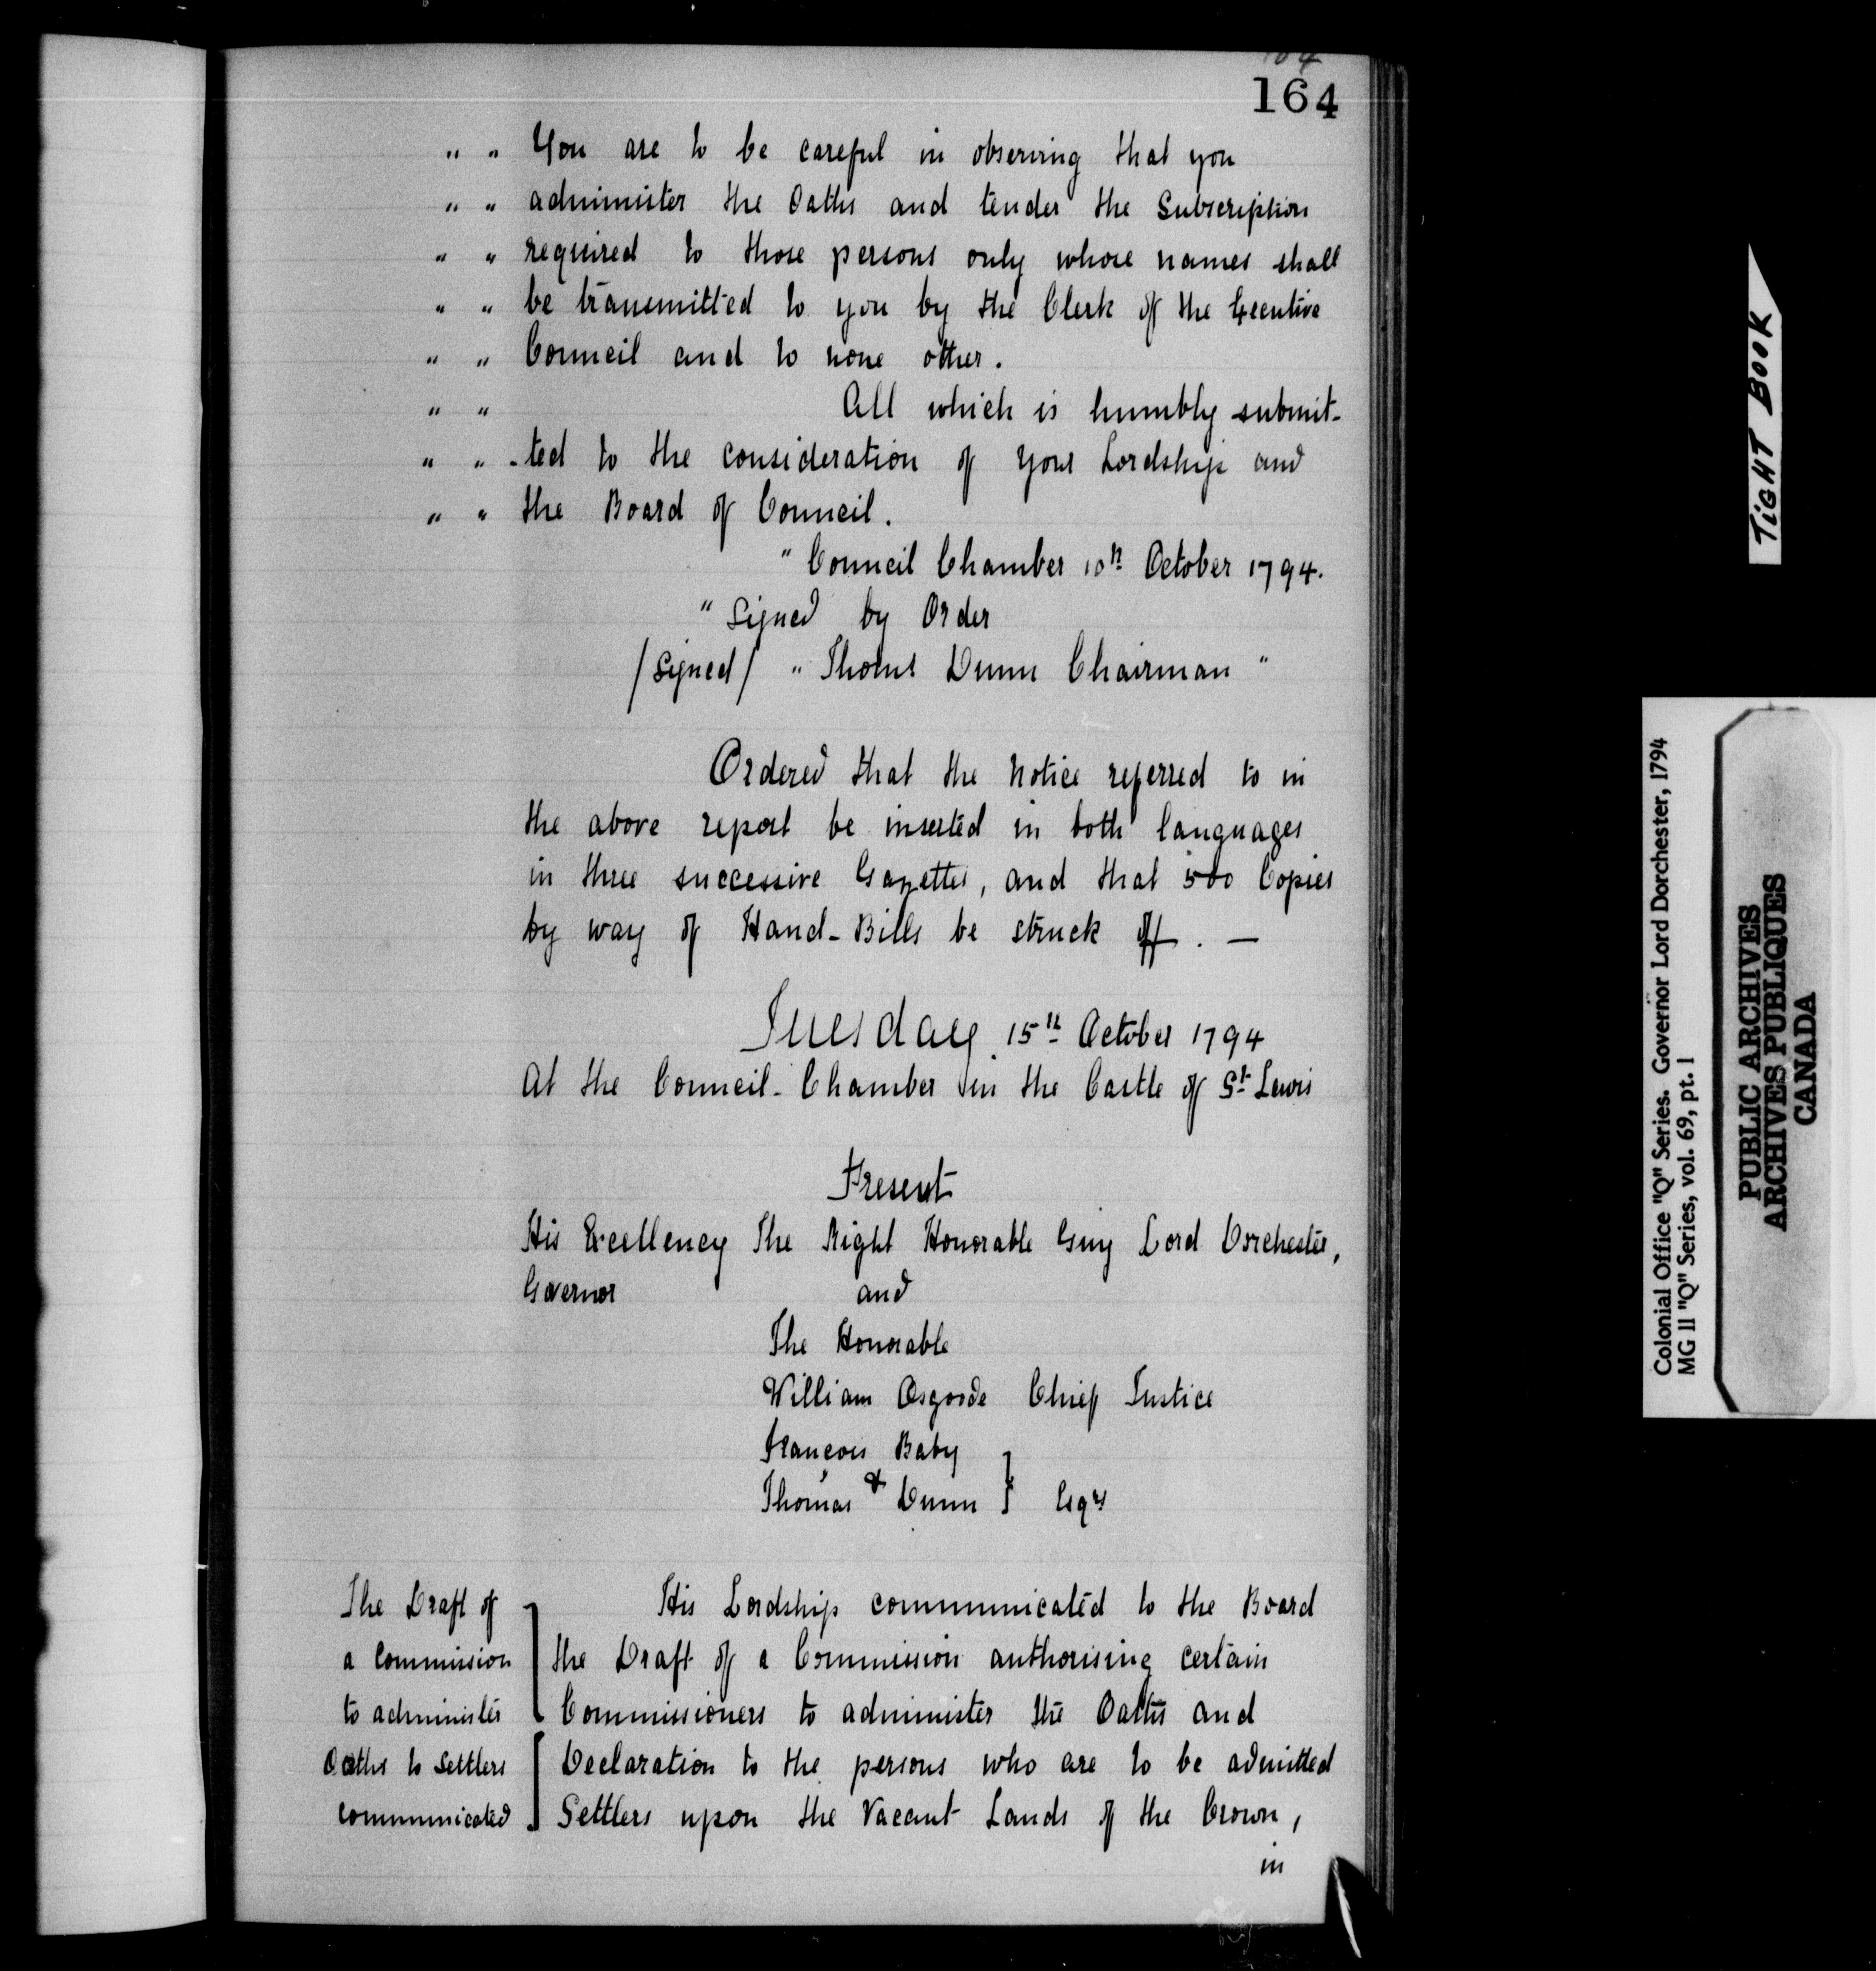 164
164
" " You are to be careful in observing that you
" " administer the Oaths and tender the Subscription
" " required to those persons only whose names shall
" " be transmitted to you by the Clerk of the Executive
" " Council and to none other.
" " All which is humbly submit-
" " -ted to the consideration of your Lordship and
" " the Board of Council.
" Council Chamber 10th October 1794.
" Signed by Order
/Signed/ " Thoms Dunn Chairman "
Ordered that the Notice referred to in
the above report be inserted in both languages
in three successive Gazettes, and that 500 Copies
by way of Hand-Bills be struck off. —
Tuesday 15th October 1794
At the Council-Chamber in the Castle of St Lewis
Present
His Excellency The Right Honorable Guy Lord Dorchester,
Governor and
The Honorable
William Osgoode Chief Justice
François Baby
Thomas & Dunn } Esqrs
The Draft of
a Commission
to administer
Oaths to Settlers
communicated
His Lordship communicated to the Board
the Draft of a Commission authorising certain
Commissioners to administer the Oaths and
Declaration to the persons who are to be admitted
Settlers upon the Vacant Lands of the Crown,
in
TIGHT BOOK
Colonial Office "Q" Series. Governor Lord Dorchester, 1794
MG 11 "Q" Series, vol. 69, pt. 1
PUBLIC ARCHIVES
ARCHIVES PUBLIQUES
CANADA